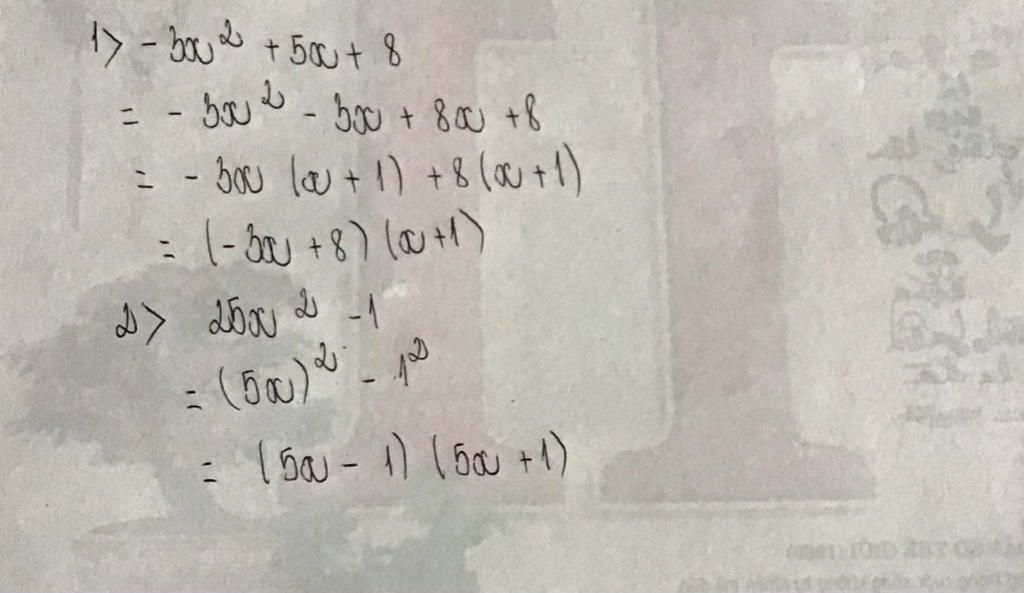 1> -3x² + 5x + 8
= -3x² - 3x + 8x + 8
= -3x (x + 1) + 8 (x + 1)
= (-3x + 8) (x + 1)
2> 25x² - 1
= (5x)² - 1²
= (5x - 1) (5x + 1)